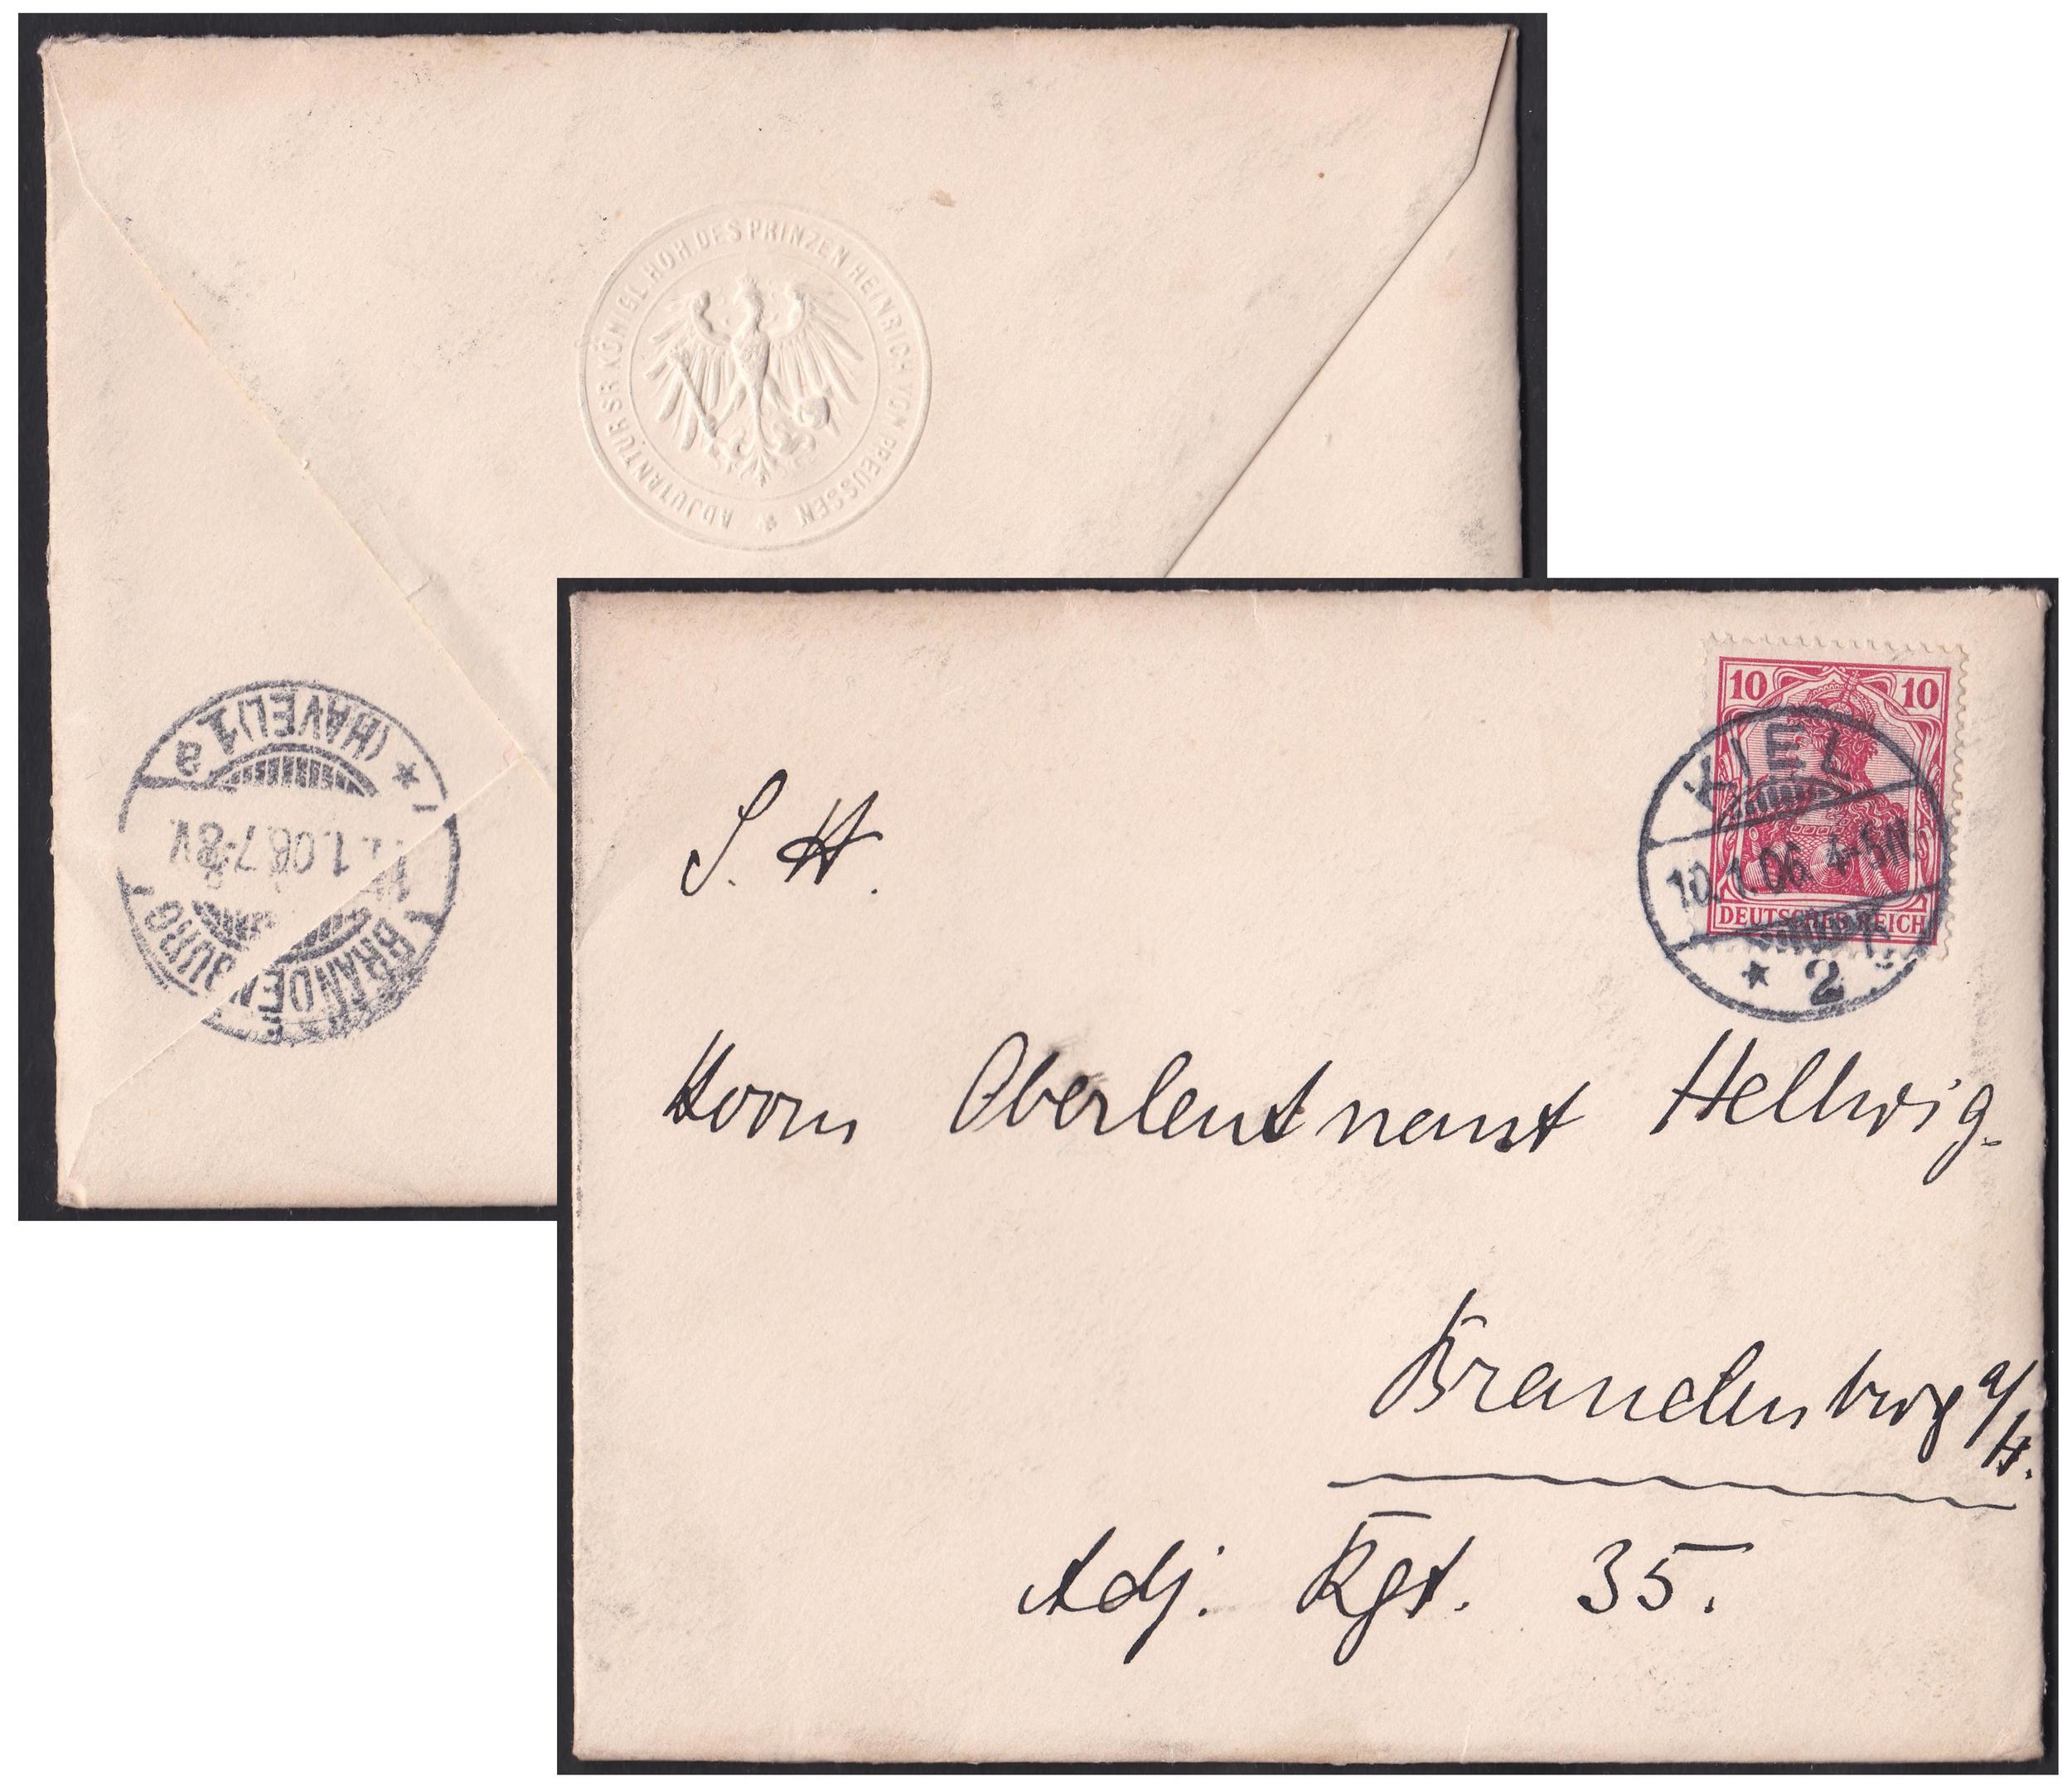 ADJUTANTUR SR KÖNIGL HOH DES PRINZEN HEINRICH VON PREUSSEN *
BRANDENBURG
1.06.7-8V.
(HAVEL)1 a
*
10 10
DEUTSCHES REICH
KIEL
10.1.06. 4-5N.
* 2
S. H.
Herrn Oberleutnant Hellwig.
Brandenburg a/H.
Adj. Rgt. 35.